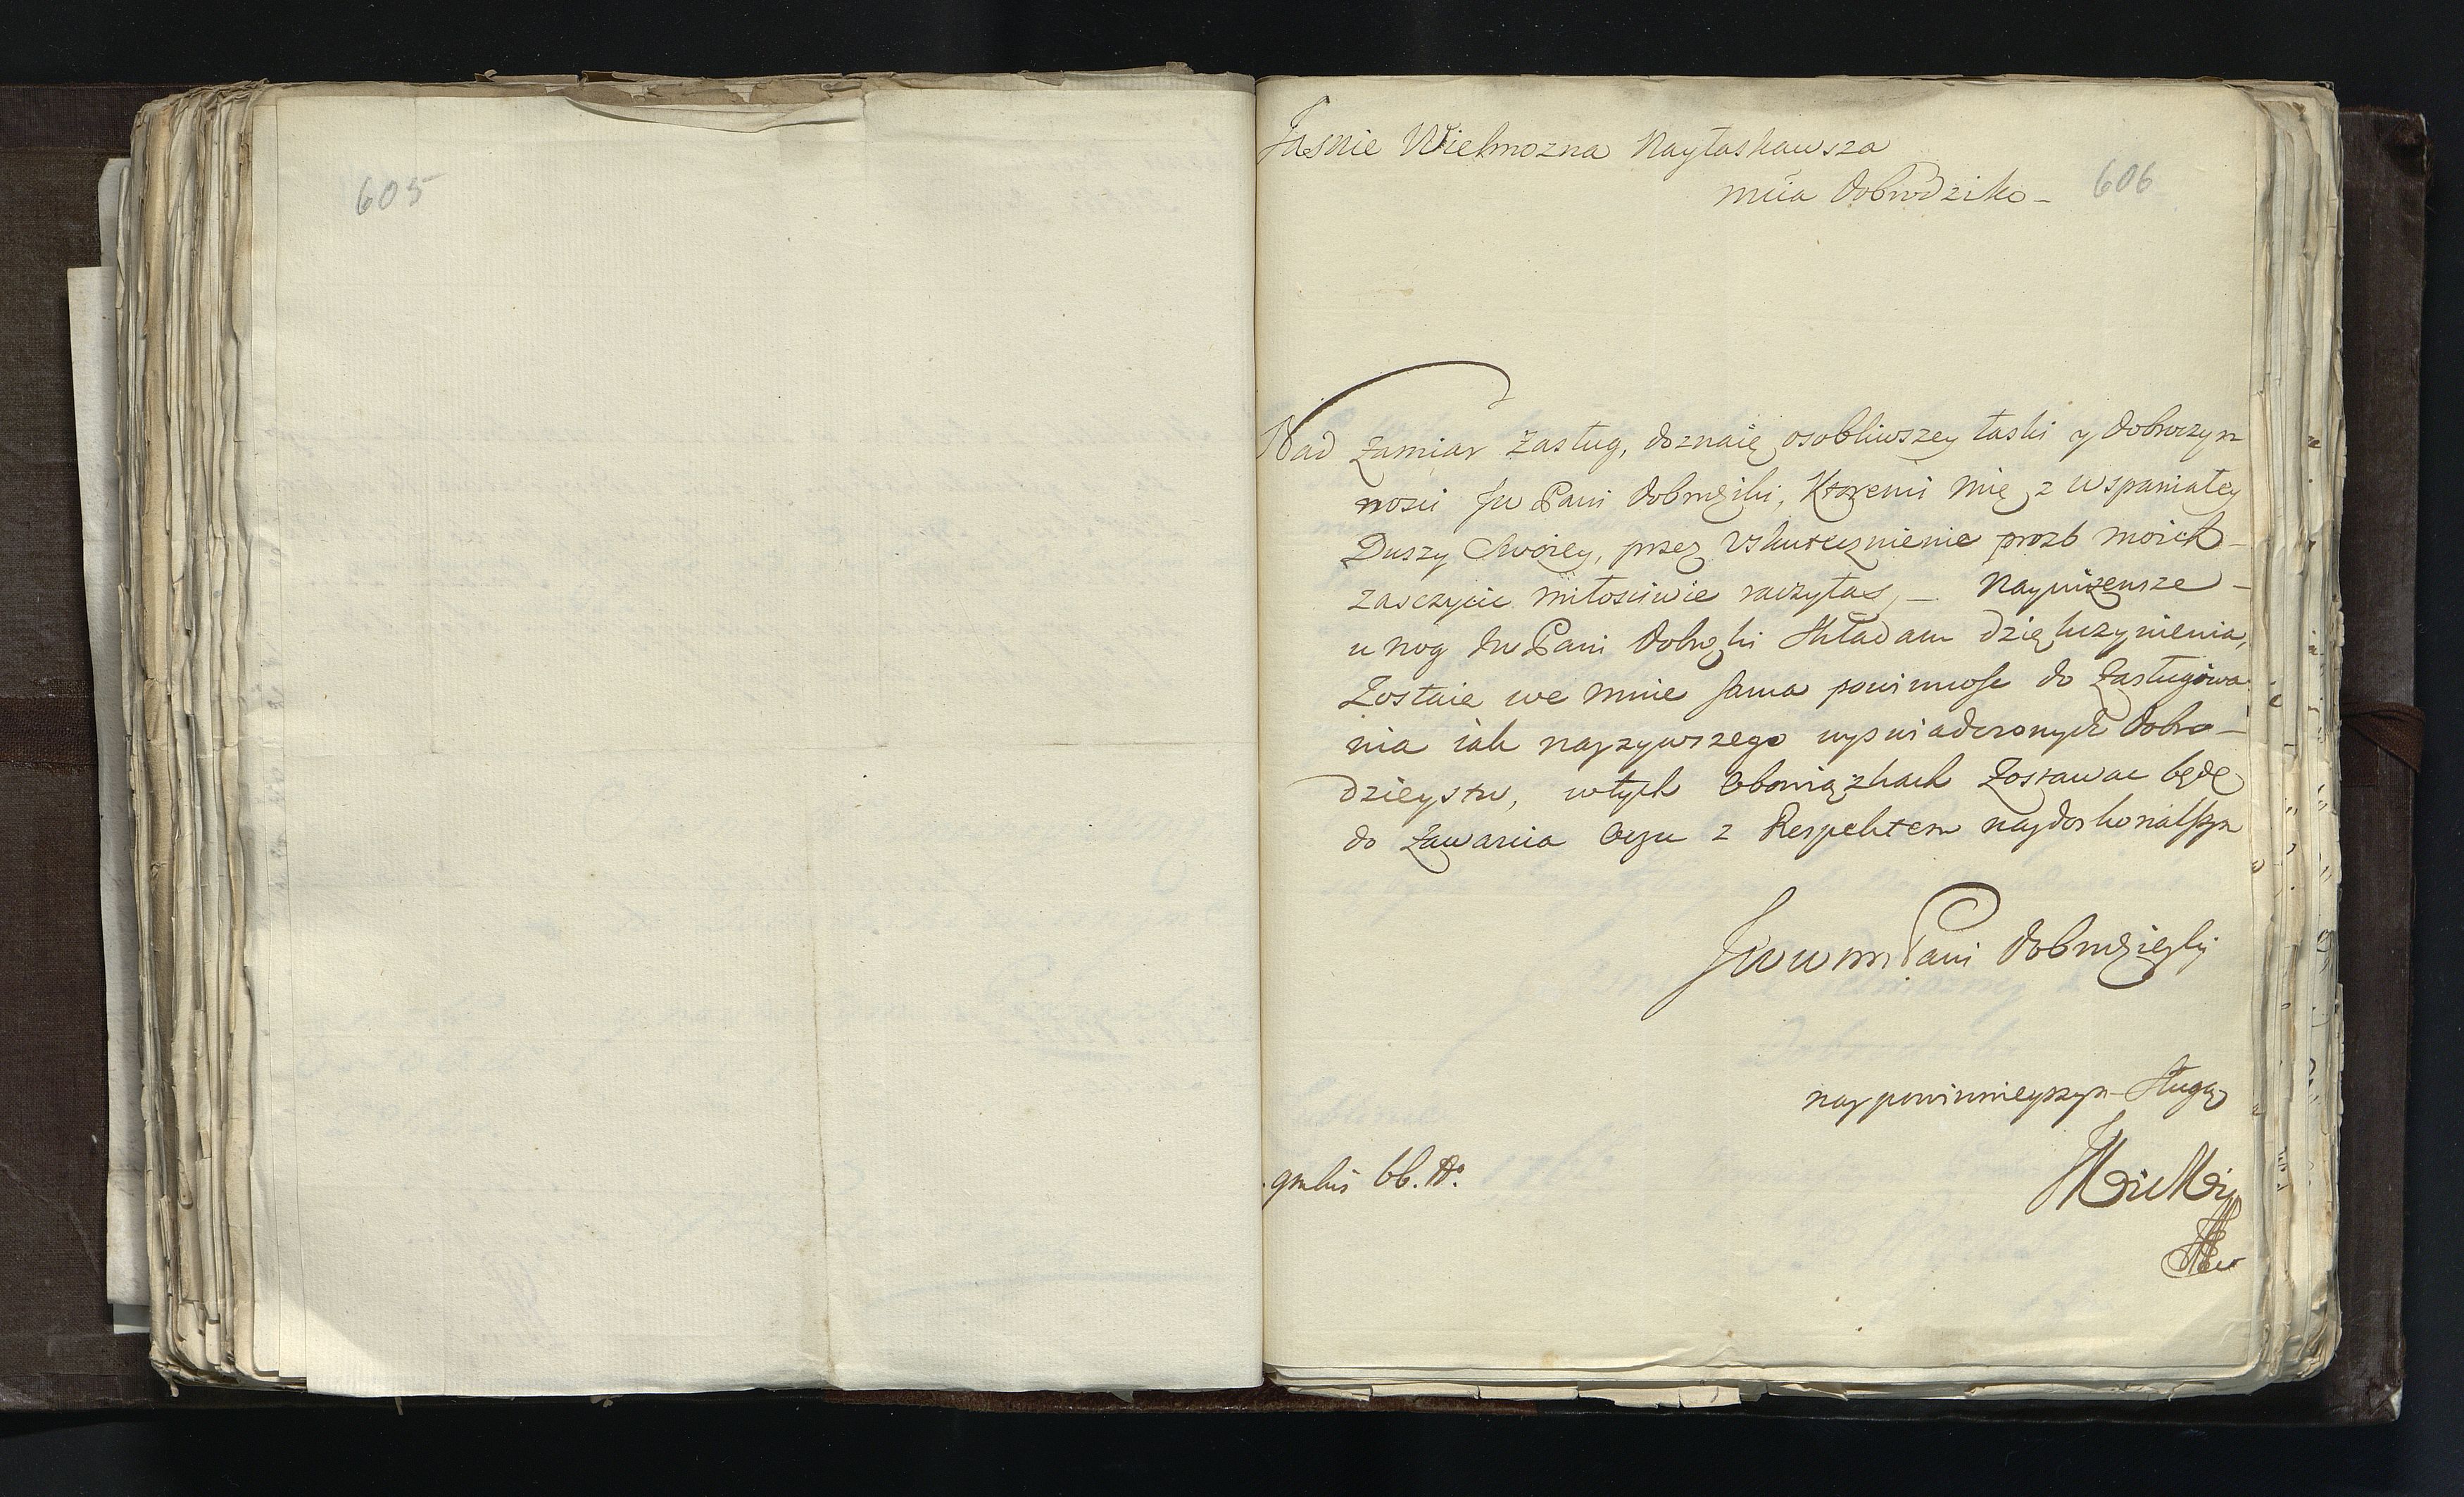 605
Jasnie Wielmozna Nayłaskawsza
606
mcia Dobrodziko -
Nad Zamiar Zasług, doznaię osobliwszey łaski y dobroczyn
nosci Jw Pani dobrodziki, Ktoremi mię z wspaniałey
Duszy Swoiey, przez Uskutecznienie prozb moich -
zasczycic miłosciwie raczyłas, - Nayniżensze -
u nog Jw Pani dobrodziki Składam dziękczynienia,
Zostaie we mnie sama powinnosc do Zasługowa
nia iak nayzywszego wyswiadczonych dobro -
dzieystw, w tych Obowiązkach Zostawac będę
do Zawarcia Oczu z Respektem naydoskonalszym
Jww Pani dobrodzieyki
naypowinnieyszym Sługą